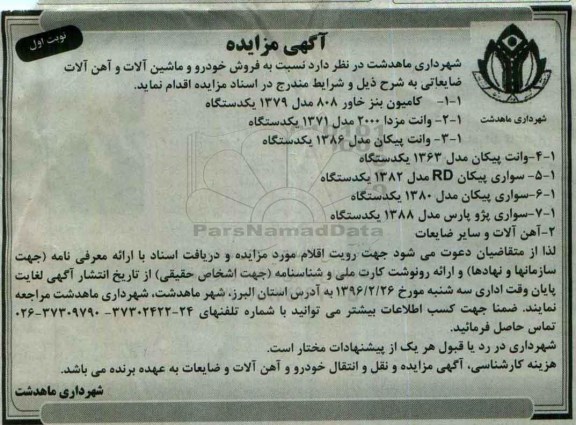 نوبت اول
آگهی مزایده
شهرداری ماهدشت
شهرداری ماهدشت در نظر دارد نسبت به فروش خودرو و ماشین آلات و آهن آلات
ضایعاتی به شرح ذیل و شرایط مندرج در اسناد مزایده اقدام نماید.
۱-۱- کامیون بنز خاور ۸۰۸ مدل ۱۳۷۹ یکدستگاه
۲-۱- وانت مزدا ۲۰۰۰ مدل ۱۳۷۱ یکدستگاه
۳-۱- وانت پیکان مدل ۱۳۸۶ یکدستگاه
۴-۱-وانت پیکان مدل ۱۳۶۳ یکدستگاه
۵-۱- سواری پیکان RD مدل ۱۳۸۲ یکدستگاه
۶-۱-سواری پیکان مدل ۱۳۸۰ یکدستگاه
۷-۱-سواری پژو پارس مدل ۱۳۸۸ یکدستگاه
ParsNamadData
۲-آهن آلات و سایر ضایعات
لذا از متقاضیان دعوت می شود جهت رویت اقلام مورد مزایده و دریافت اسناد با ارائه معرفی نامه (جهت
سازمانها و نهادها) و ارائه رونوشت کارت ملی و شناسنامه (جهت اشخاص حقیقی) از تاریخ انتشار آگهی لغایت
پایان وقت اداری سه شنبه مورخ ۱۳۹۶/۲/۲۶ به آدرس استان البرز، شهر ماهدشت، شهرداری ماهدشت مراجعه
نمایند. ضمنا جهت کسب اطلاعات بیشتر می توانید با شماره تلفنهای ۲۴-۳۷۳۰۲۴۲۲- ۳۷۳۰۹۷۹۰-۰۲۶
تماس حاصل فرمائید.
شهرداری در رد یا قبول هر یک از پیشنهادات مختار است.
هزینه کارشناسی، آگهی مزایده و نقل و انتقال خودرو و آهن آلات و ضایعات به عهده برنده می باشد.
شهرداری ماهدشت